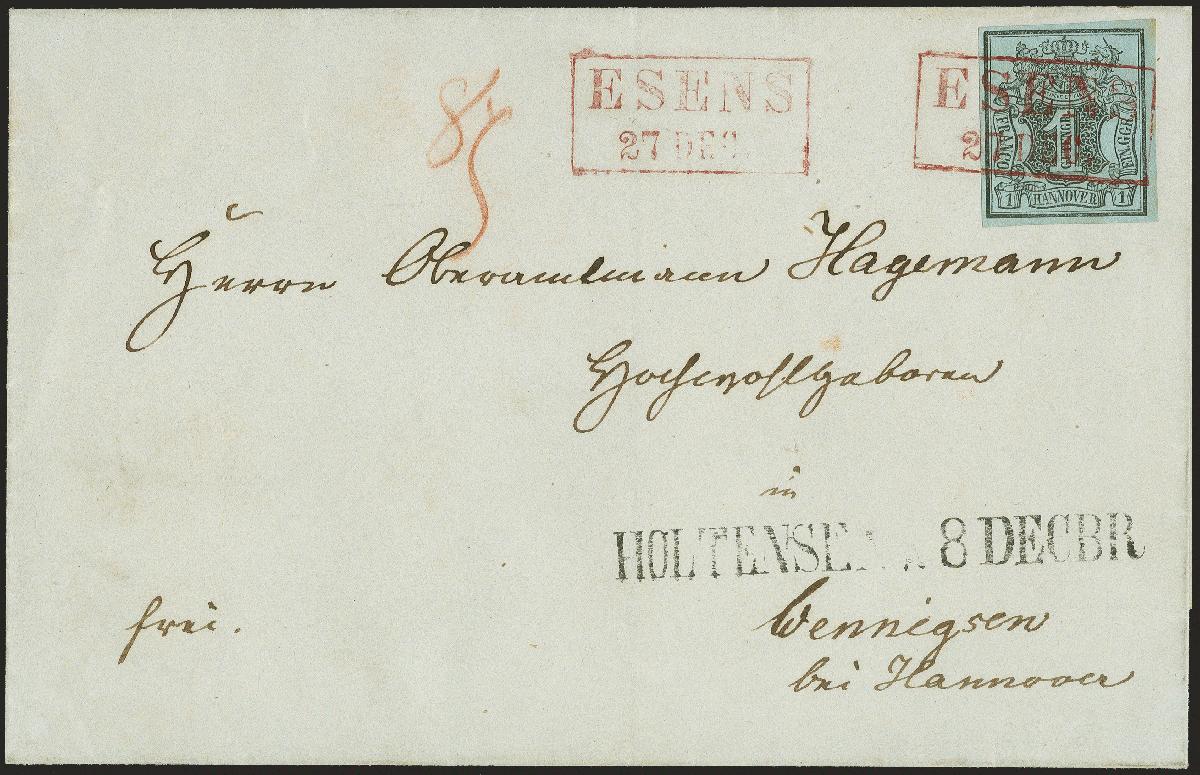 ESENS
27 DEC.
ESEN
FRANCO
1
EIN.GGR.
1 HANNOVER 1
Herrn Oberamtmann Hagemann
Hochwohlgeboren
in
HOLTENSEN 8 DECBR
Wennigsen
bei Hannover
frei.